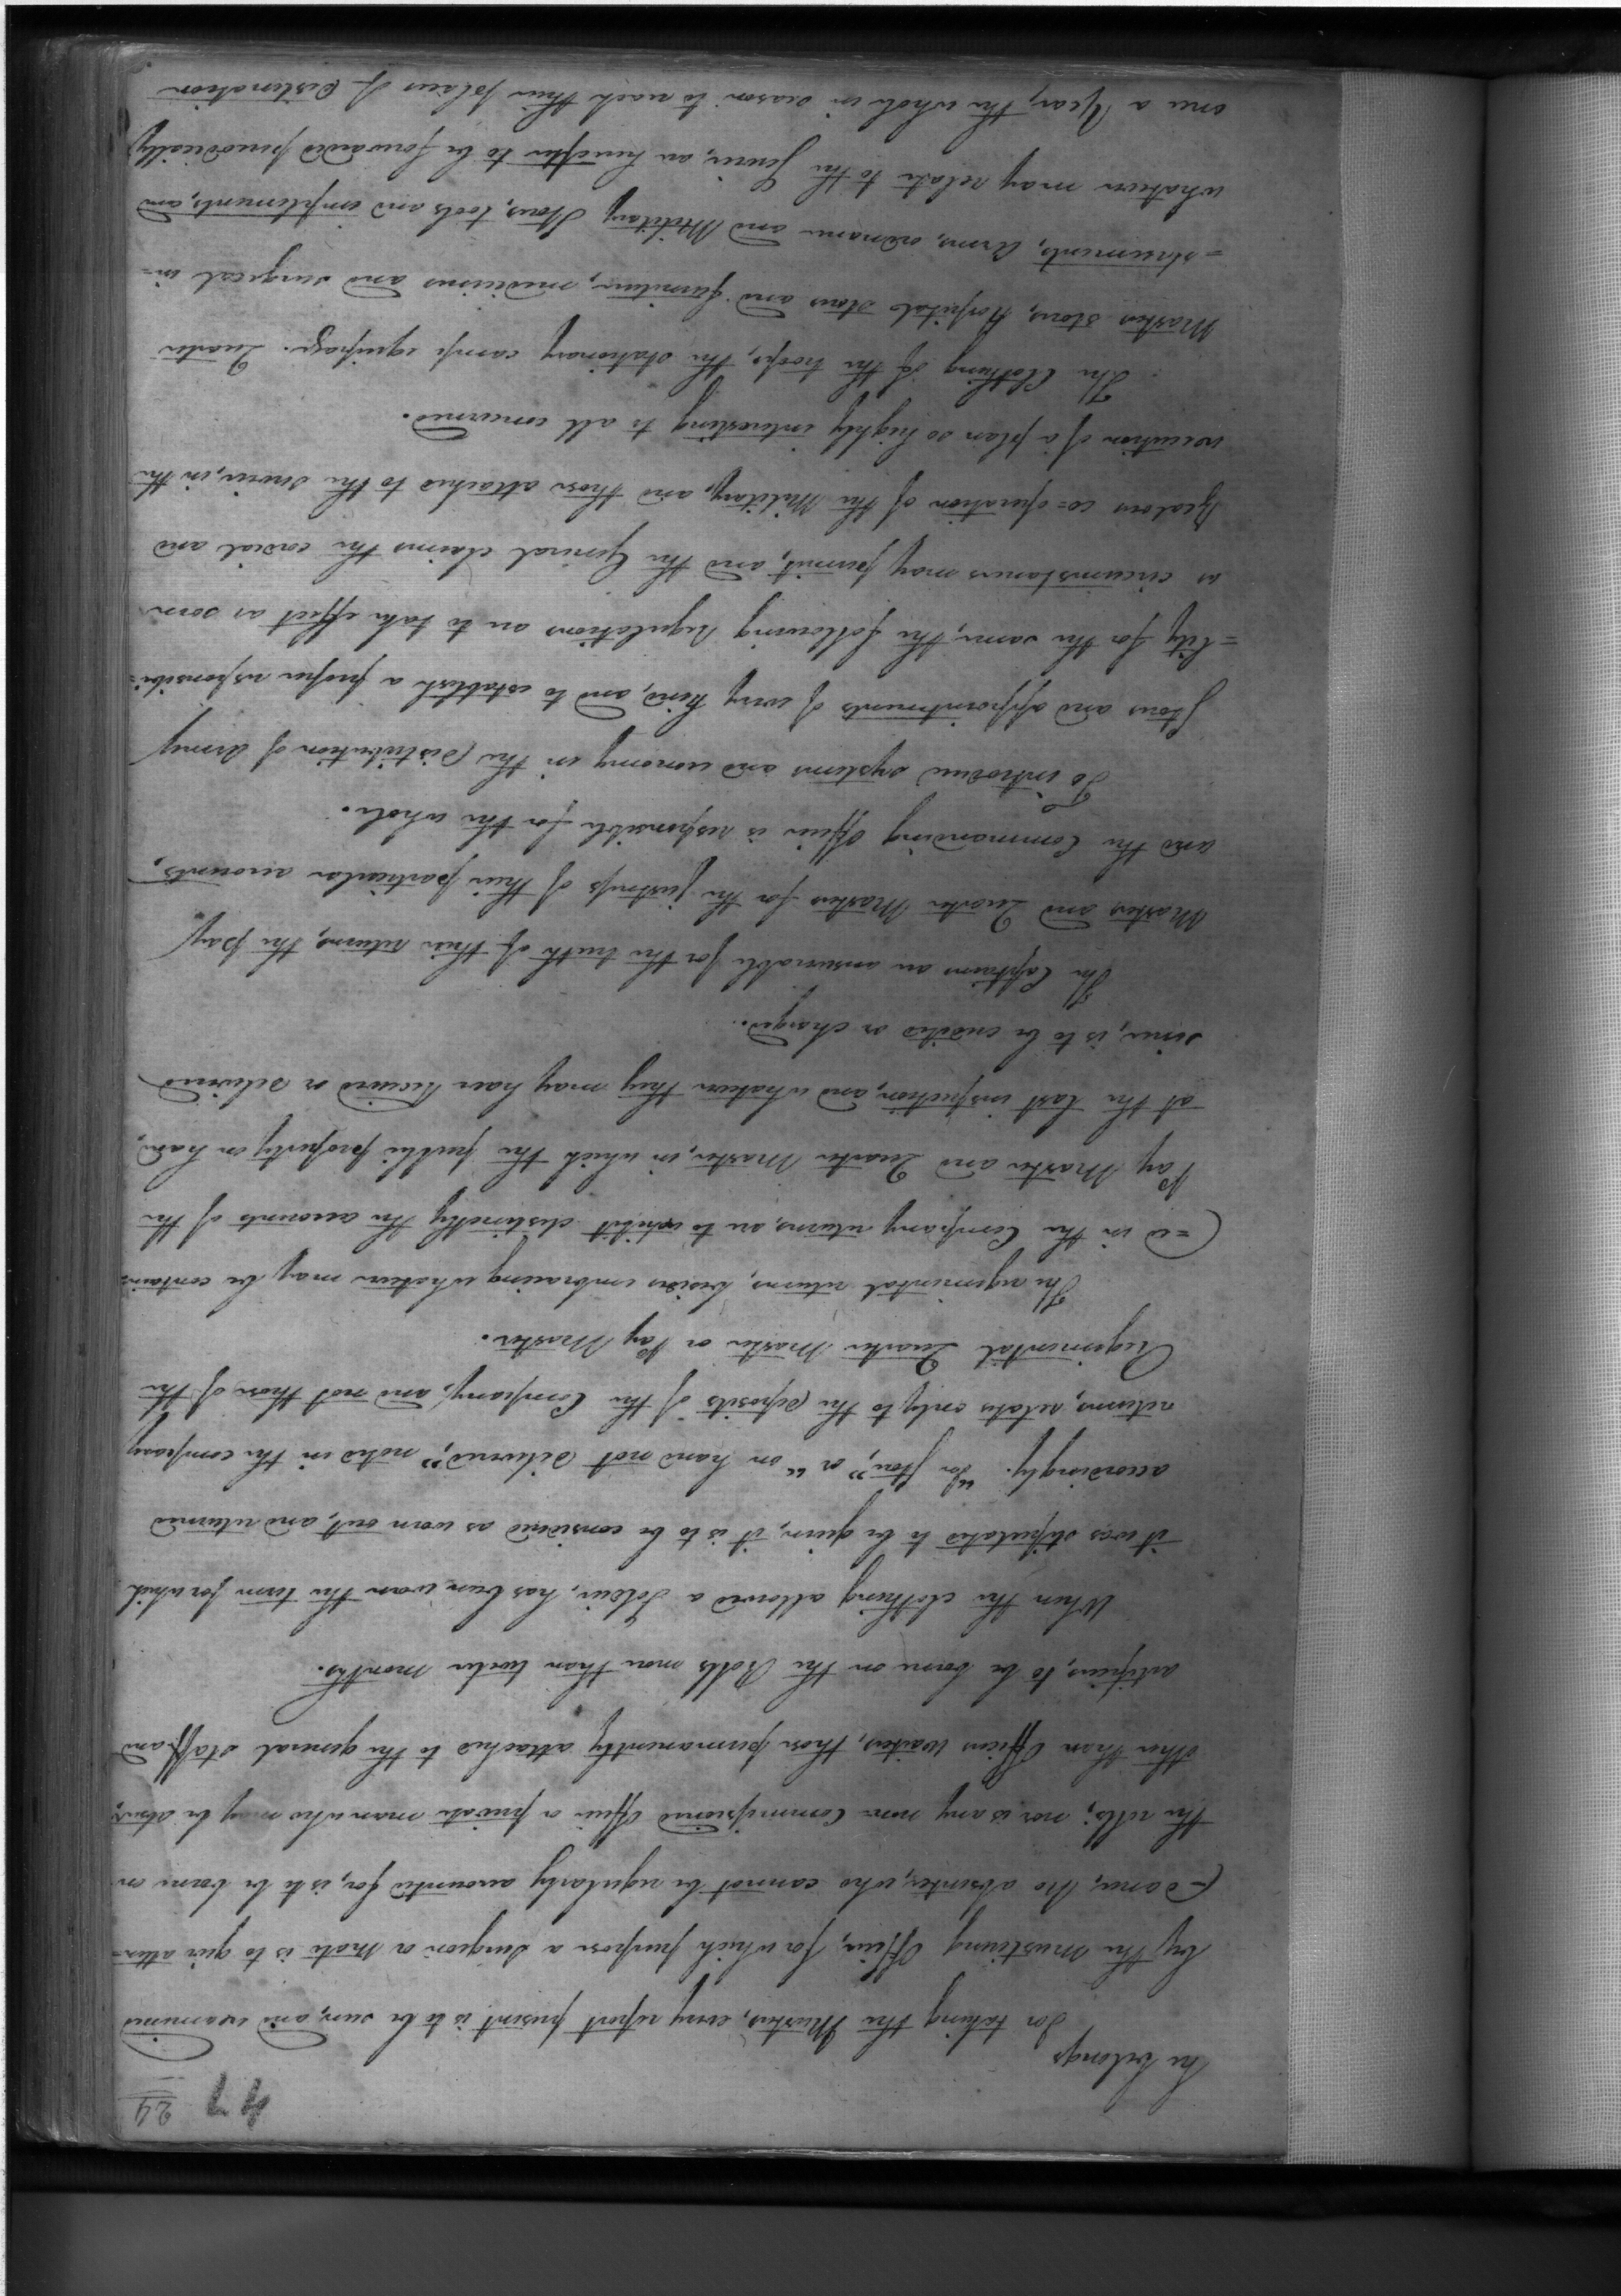 47 24
he belongs
In taking the Musters, every report present is to be seen, and examined
by the Mustering Officer, for which purpose a Surgeon or Mate is to give atten=
=dance, No absentee, who cannot be regularly accounted for, is to be borne on
the rolls; nor is any non-Commissioned Officer or private man who may be absent,
other than Officers Waiters, those permanently attached to the general staff and
artificers, to be borne on the Rolls more than twelve months.
When the clothing allowed a Soldier, has been worn the term for which
it was stipulated to be given, it is to be considered as worn out, and returned
accordingly. "In Store," or "on hand not delivered," noted in the company
returns, relates only to the deposits of the Company, and not those of the
Regimental Quarter Master or Pay Master.
The regimental returns, besides embracing whatever may be contain=
=ed in the Company returns, are to exhibit distinctly the accounts of the
Pay Master and Quarter Master, in which the public property on hand,
at the last inspection, and whatever they may have Received or delivered
since, is to be credited or charged.
The Captains are answerable for the truth of their returns, the Pay
Masters and Quarter Masters for the justness of their particular accounts,
and the Commanding Officer is responsible for the whole.
To introduce systems and economy in the distribution of Army
Stores and appointments of every kind, and to establish a proper responsibi=
=lity for the same, the following Regulations are to take effect as soon
as circumstances may permit, and the General claims the cordial and
Zealous co=operation of the Military, and those attached to the service, in the
execution of a plan so highly interesting to all concerned.
The Clothing of the troops, the stationary camp equipage. Quarter
Masters stores, Hospital stores and furniture, medicines and surgical in=
=struments, Arms, ordnance and Military Stores, tools and implements, and
whatever may relate to the service, are hereafter to be forwarded periodically
once a Year, the whole in season to reach their places of destination